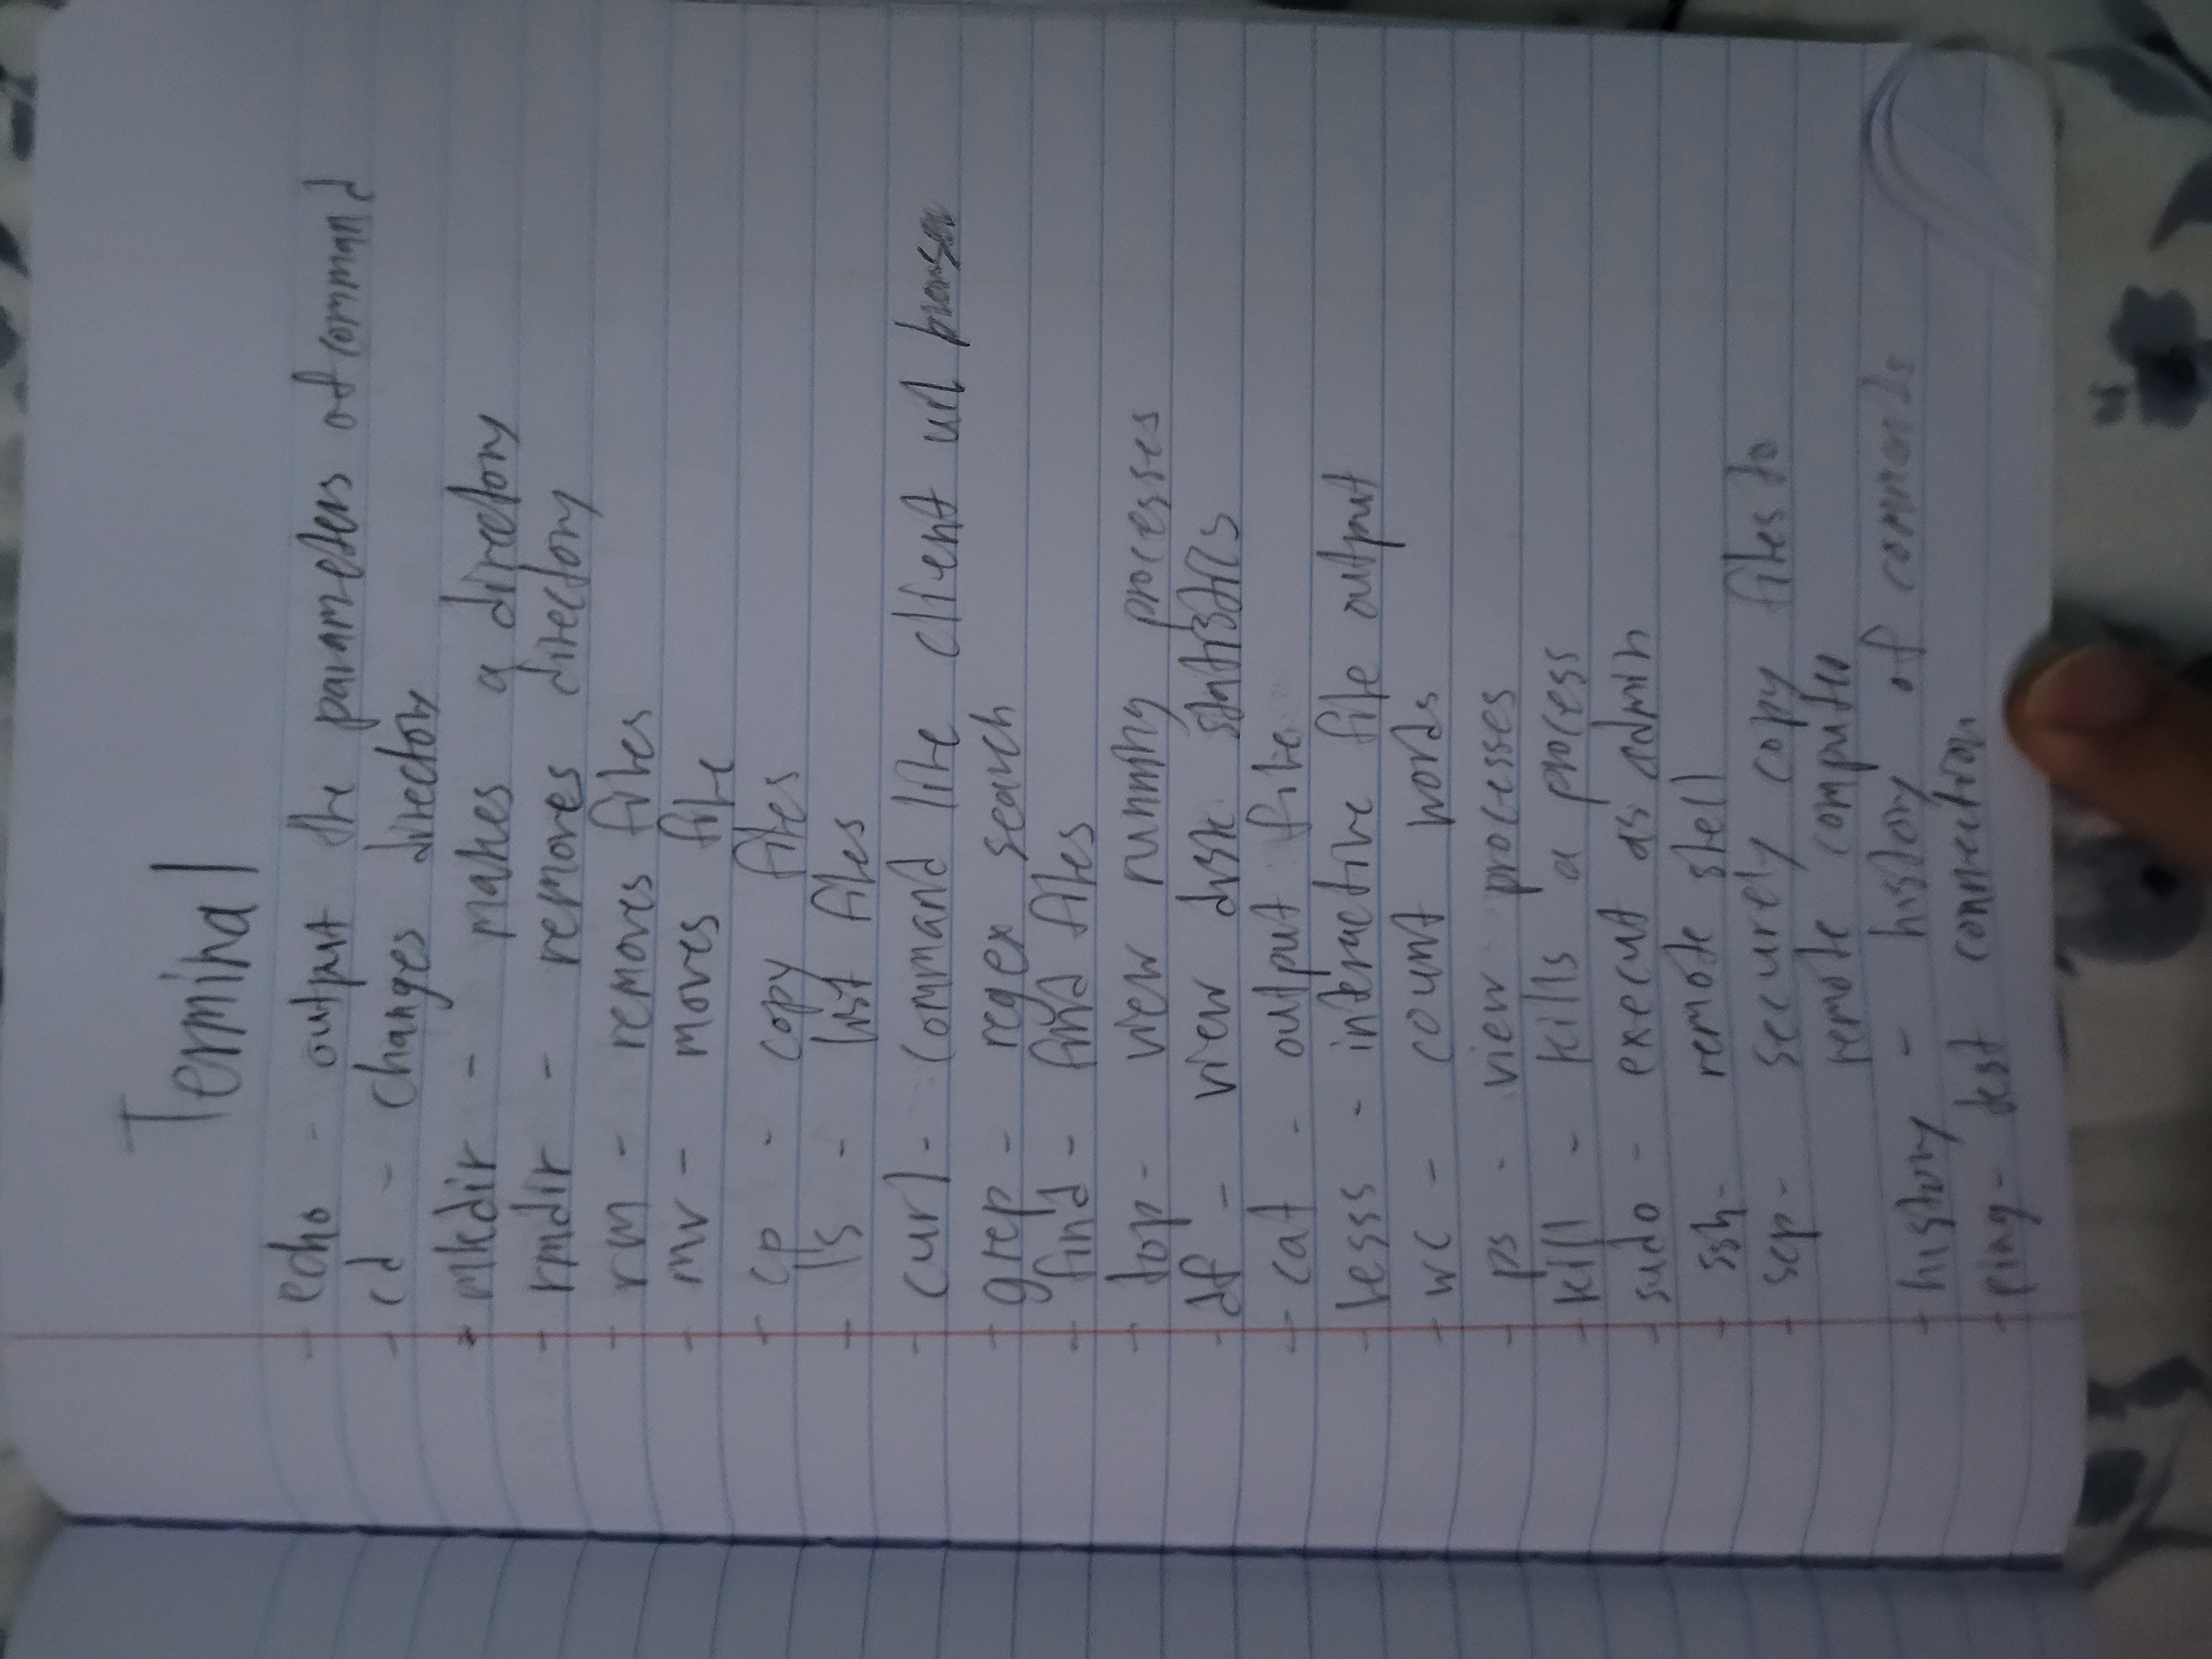 Terminal
- echo - output the parameters of command
- cd - changes directory
- mkdir - makes a directory
- rmdir - removes directory
- rm - removes files
- mv - moves file
- cp - copy files
- ls - list files
- curl - command line client url browser
- grep - regex search
- find - find files
- top - view running processes
- df - view disk statistics
- cat - output file
- lesss - interactive file output
- wc - count words
- ps - view processes
- kill - kills a process
- sudo - execut as admin
- ssh - remote shell
- scp - securely copy files to
remote computer
- history - history of commands
- ping - test connection